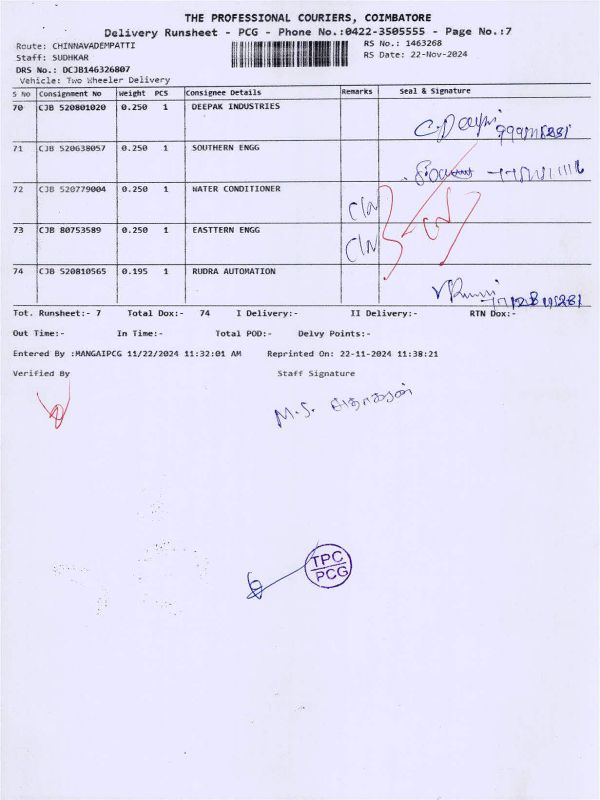 THE PROFESSIONAL COURIERS, COIMBATORE
Delivery Runsheet - PCG - Phone No.:0422-3505555 - Page No.:7
Route: CHINNAVADEMPATTI
RS No.: 1463268
Staff: SUDHKAR
RS Date: 22-Nov-2024
DRS No.: DCJB146326807
Vehicle: Two Wheeler Delivery
S No Consignment No Weight PCS Consignee Details Remarks Seal & Signature
70 CJB 520801020 0.250 1 DEEPAK INDUSTRIES
71 CJB 520638057 0.250 1 SOUTHERN ENGG
72 CJB 520779004 0.250 1 WATER CONDITIONER
73 CJB 80753589 0.250 1 EASTTERN ENGG
74 CJB 520810565 0.195 1 RUDRA AUTOMATION
Tot. Runsheet:- 7 Total Dox:- 74 I Delivery:- II Delivery:- RTN Dox:-
Out Time:- In Time:- Total POD:- Delvy Points:-
Entered By :MANGAIPCG 11/22/2024 11:32:01 AM Reprinted On: 22-11-2024 11:38:21
Verified By Staff Signature
M.S.
TPC
PCG